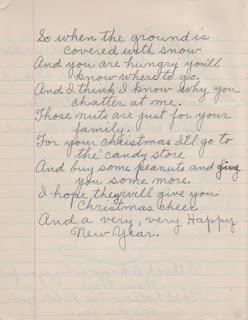 So when the ground is
covered with snow
And you are hungry you'll
know where to go.
And I think I know why you
chatter at me.
Those nuts are just for your
family.
For your Christmas I'll go to
the candy store
And buy some peanuts and give
you some more.
I hope they will give you
Christmas cheer
And a very, very Happy
New Year.